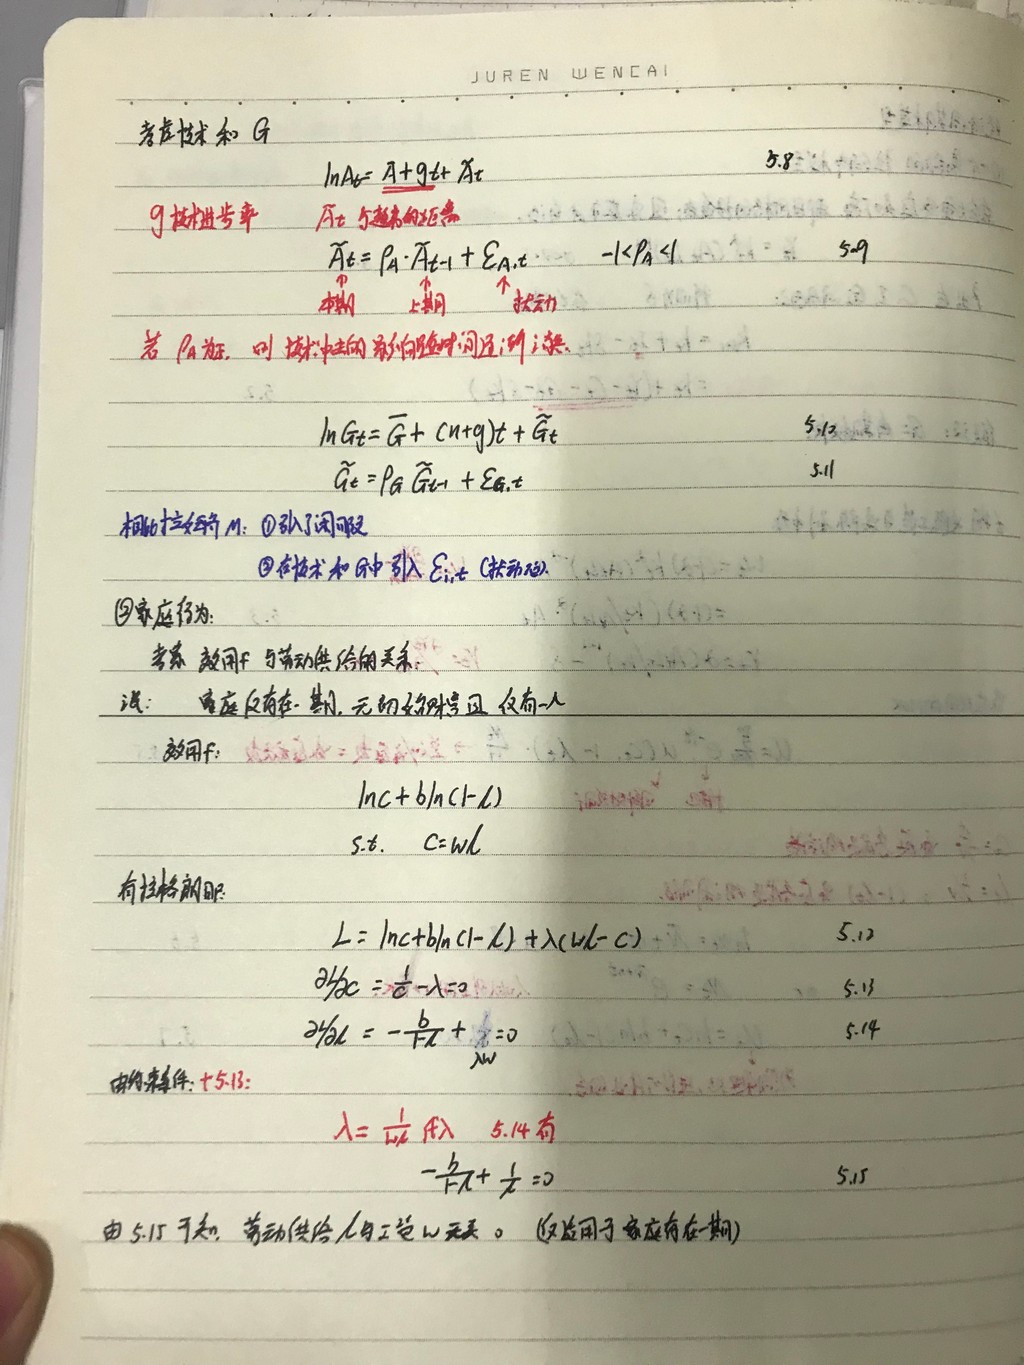 JUREN WENCAI
考虑技术和 G
lnAt = Ā+gt+Ãt 5.8
g技术进步率 Ãt 与趋势的距离
Ãt = ρA·Ãt-1 + εA,t -1<ρA<1 5.9
本期 上期 扰动
若 ρA为正, 则 技术冲击的影响随时间逐渐消失.
lnGt = Ḡ + (n+g)t + G̃t 5.10
G̃t = ρG G̃t-1 + εG,t 5.11
相比拉姆齐M: ①引入了闲暇
②在技术和G中引入 εi,t (扰动项).
②家庭行为:
考虑 效用f 与劳动供给的关系:
设: 家庭仅存在一期, 无初始财富且 仅有一人
效用f:
lnc+bln(1-l)
s.t. c=wl
有拉格朗日:
L = lnc+bln(1-l)+λ(wl-c) 5.12
∂L/∂c = 1/c -λ=0 5.13
∂L/∂l = - b/1-l + λw =0 5.14
由约束条件: +5.13:
λ= 1/wl 代入 5.14有
- b/1-l + 1/l =0 5.15
由 5.15 可知, 劳动供给 l 与工资 w 无关。 (仅适用于家庭存在一期)